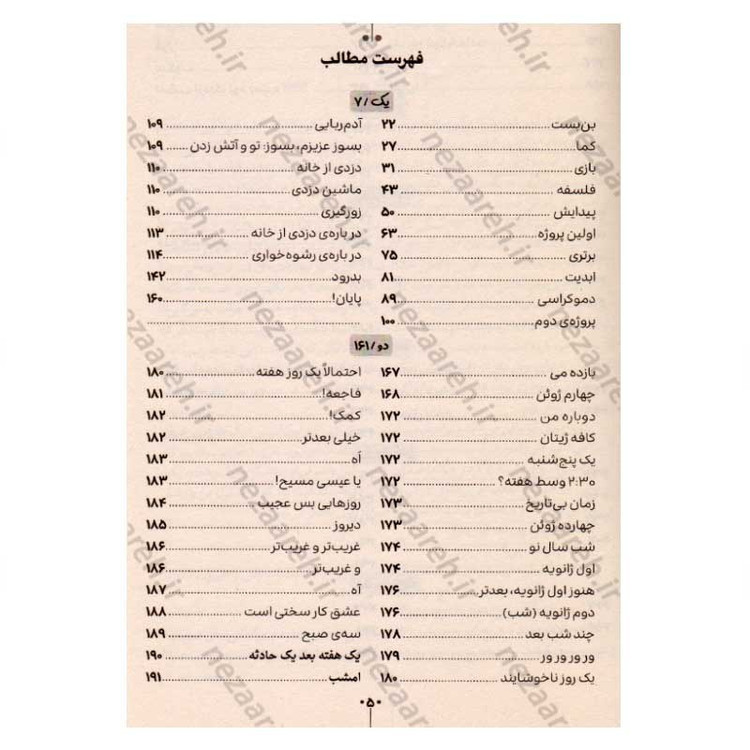 فهرست مطالب
یک / ۷
بن‌بست ۲۲
کما ۲۷
بازی ۳۱
فلسفه ۴۳
پیدایش ۵۰
اولین پروژه ۶۳
برتری ۷۵
ابدیت ۸۱
دموکراسی ۸۹
پروژه‌ی دوم ۱۰۰
آدم‌ربایی ۱۰۹
بسوز عزیزم، بسوز: تو و آتش زدن ۱۰۹
دزدی از خانه ۱۱۰
ماشین دزدی ۱۱۰
زورگیری ۱۱۰
درباره‌ی دزدی از خانه ۱۱۳
درباره‌ی رشوه‌خواری ۱۱۴
بدرود ۱۴۲
پایان! ۱۶۰
دو / ۱۶۱
یازده می ۱۶۷
چهارم ژوئن ۱۶۸
دوباره من ۱۷۲
کافه ژیتان ۱۷۲
یک پنج‌شنبه ۱۷۲
۲:۳۰ وسط هفته؟ ۱۷۲
زمان بی‌تاریخ ۱۷۳
چهارده ژوئن ۱۷۳
شب سال نو ۱۷۴
اول ژانویه ۱۷۴
هنوز اول ژانویه، بعدتر ۱۷۶
دوم ژانویه (شب) ۱۷۶
چند شب بعد ۱۷۸
ور ور ور ور ۱۷۹
یک روز ناخوشایند ۱۸۰
احتمالاً یک روز هفته ۱۸۰
فاجعه! ۱۸۱
کمک! ۱۸۲
خیلی بعدتر ۱۸۲
اَه ۱۸۳
یا عیسی مسیح! ۱۸۳
روزهایی بس عجیب ۱۸۴
دیروز ۱۸۵
غریب‌تر و غریب‌تر ۱۸۶
و غریب‌تر ۱۸۶
آه ۱۸۷
عشق کار سختی است ۱۸۸
سه‌ی صبح ۱۸۹
یک هفته بعد یک حادثه ۱۹۰
امشب ۱۹۱
۵
nezaareh.ir